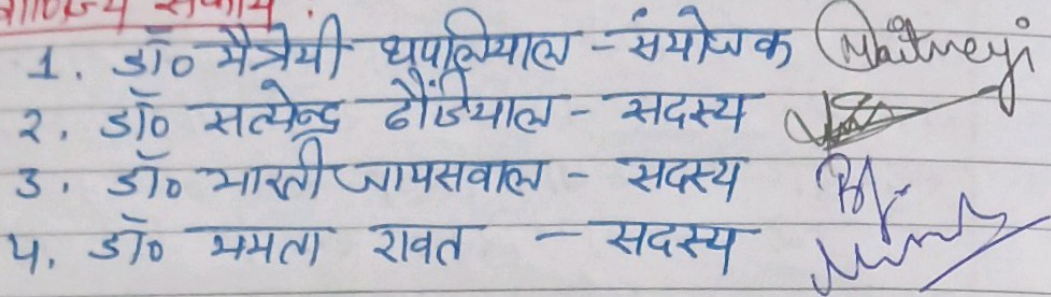 वाणिज्य संकाय :
1. डॉ० मैत्रेयी थपलियाल - संयोजक Maitreyi
२. डॉ० सत्येन्द्र ढौंडियाल - सदस्य
3. डॉ० भारती जायसवाल - सदस्य
४. डॉ० ममता रावत - सदस्य